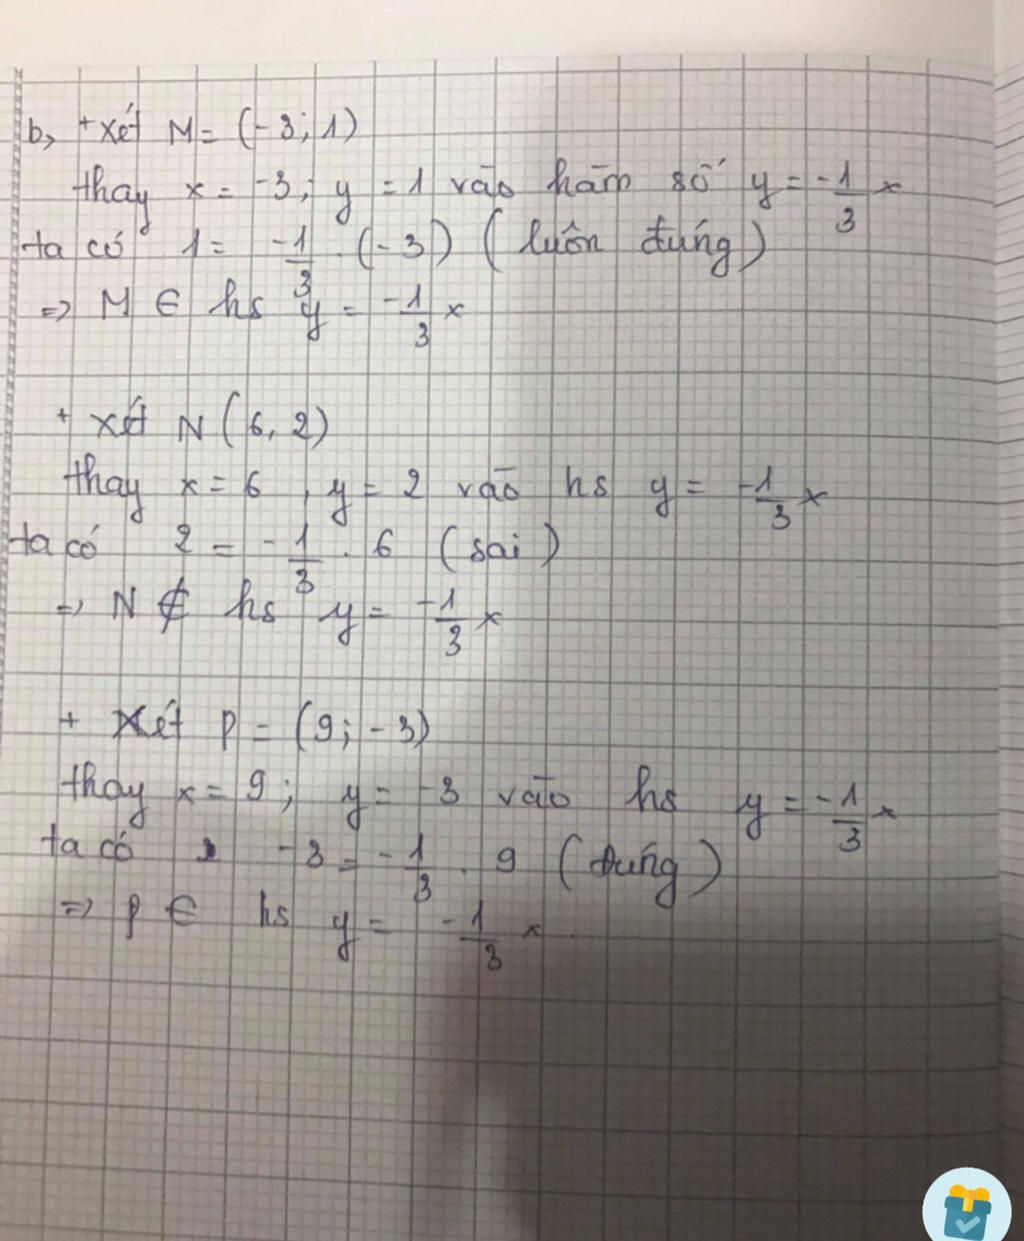 b, + xét M = (-3; 1)
thay x = -3; y = 1 vào hàm số y = -1/3 x
ta có 1 = -1/3 . (-3) (luôn đúng)
=> M ∈ hs y = -1/3 x
+ xét N (6, 2)
thay x = 6, y = 2 vào hs y = -1/3 x
ta có 2 = -1/3 . 6 (sai)
=> N ∉ hs y = -1/3 x
+ Xét P = (9; -3)
thay x = 9; y = -3 vào hs y = -1/3 x
ta có -3 = -1/3 . 9 (đúng)
=> P ∈ hs y = -1/3 x.